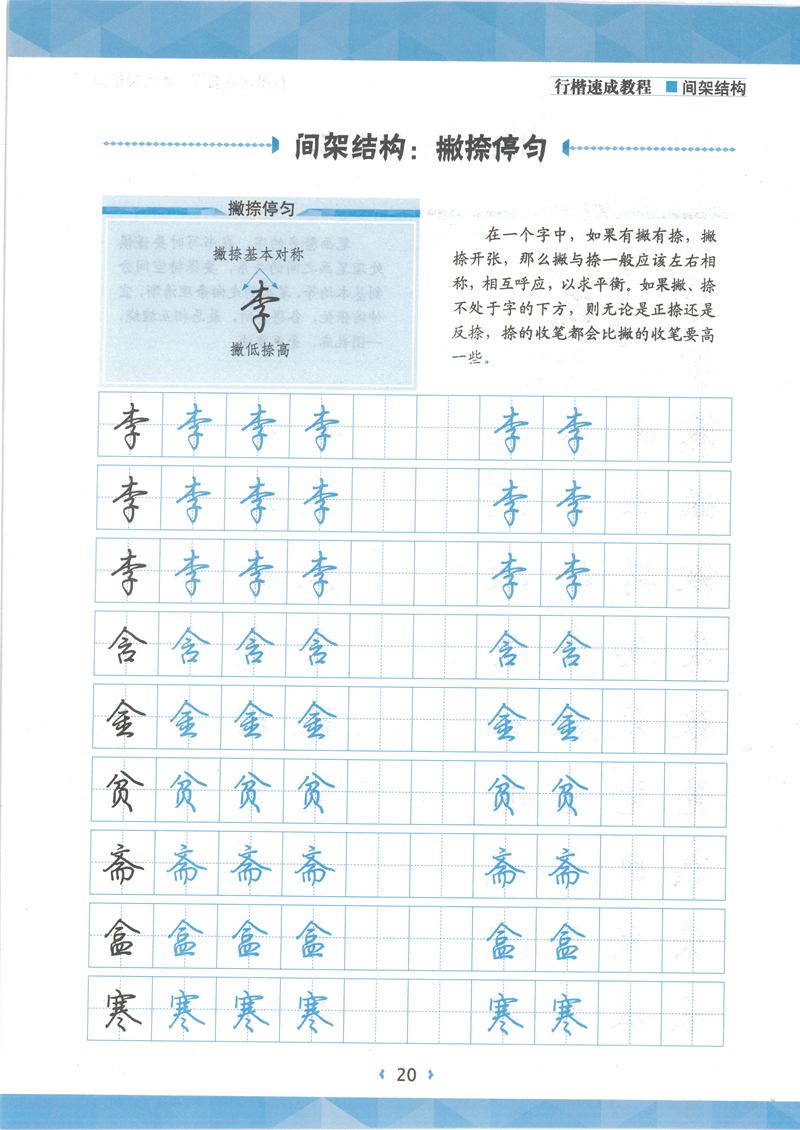 行楷速成教程 间架结构
间架结构：撇捺停匀
撇捺停匀
撇捺基本对称
李
撇低捺高
在一个字中，如果有撇有捺，撇
捺开张，那么撇与捺一般应该左右相
称，相互呼应，以求平衡。如果撇、捺
不处于字的下方，则无论是正捺还是
反捺，捺的收笔都会比撇的收笔要高
一些。
李 李 李 李 李 李
李 李 李 李 李 李
李 李 李 李 李 李
含 含 含 含 含 含
金 金 金 金 金 金
贫 贫 贫 贫 贫 贫
斋 斋 斋 斋 斋 斋
盒 盒 盒 盒 盒 盒
寒 寒 寒 寒 寒 寒
20